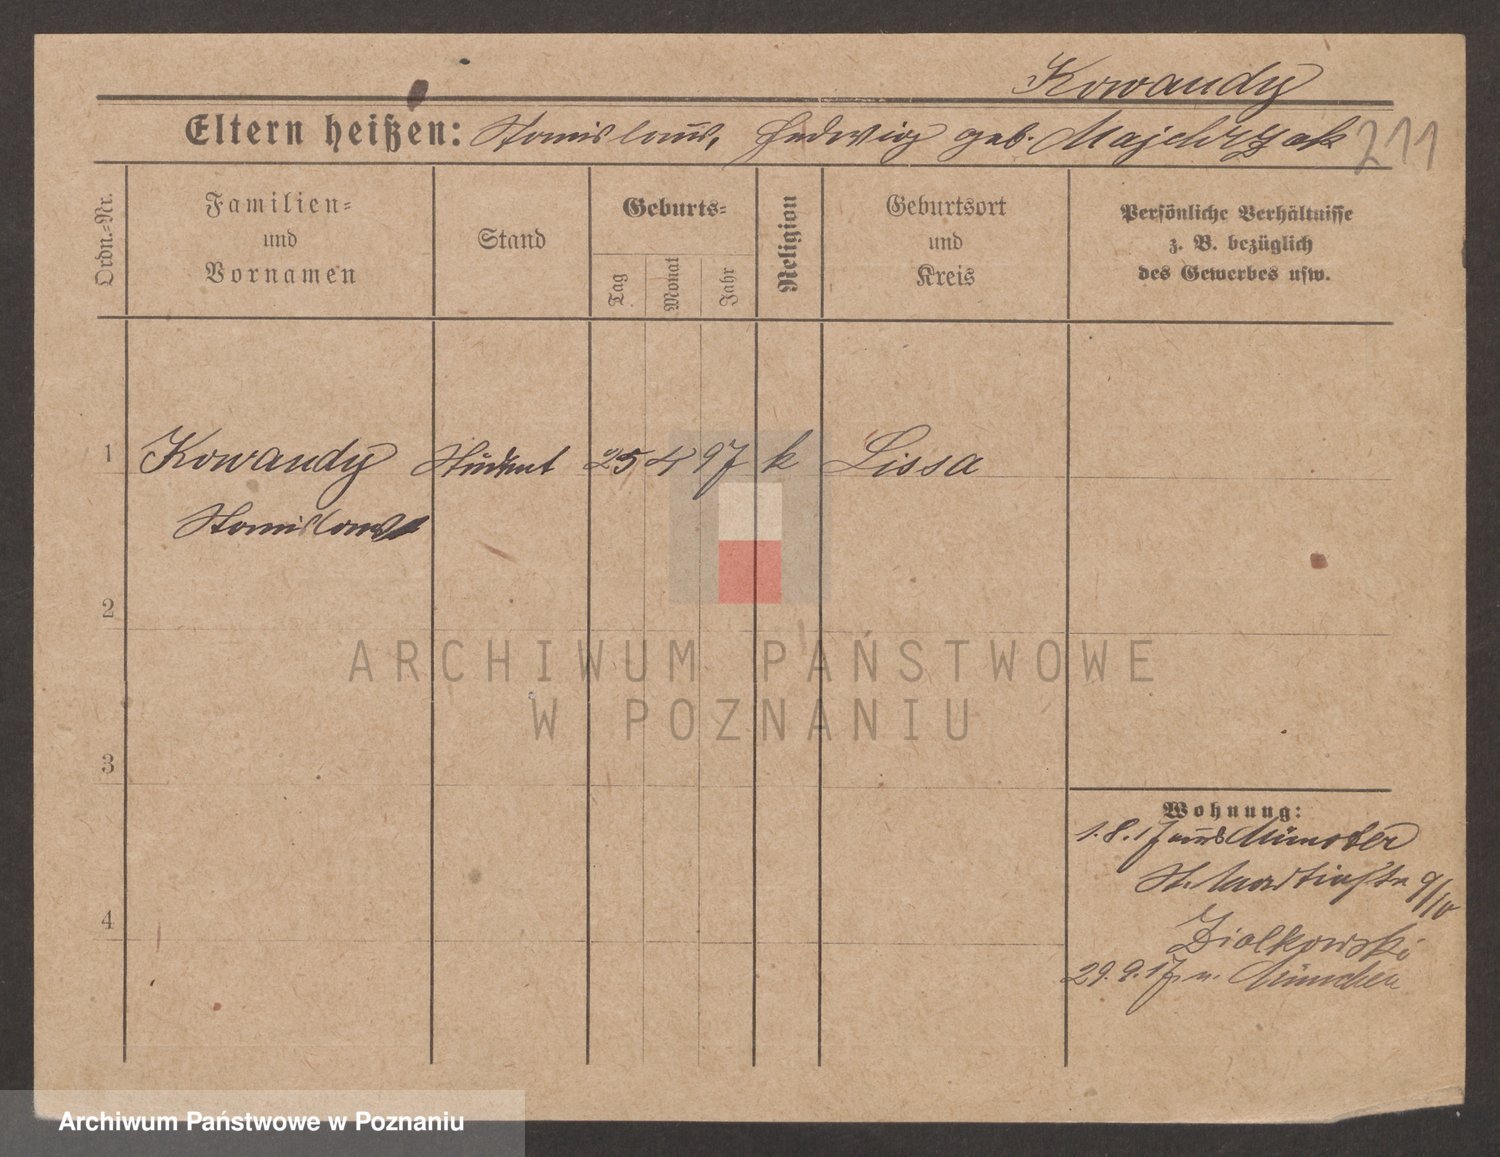 Kowandy
Eltern heißen: Stanislaus, Hedwig geb. Majchrzak 211
Ordn.-Nr.
Familien-
und
Vornamen
Stand
Geburts-
Tag
Monat
Jahr
Religion
Geburtsort
und
Kreis
Persönliche Verhältnisse
z. B. bezüglich
des Gewerbes usw.
1 Kowandy Student 25 4 97 k Lissa
Stanislaus
2
3
4
Wohnung:
1.8.17 aus Münster
St. Martinstr 9/10
Ziolkowski
29.9.17 n. München
ARCHIWUM PAŃSTWOWE
W POZNANIU
Archiwum Państwowe w Poznaniu